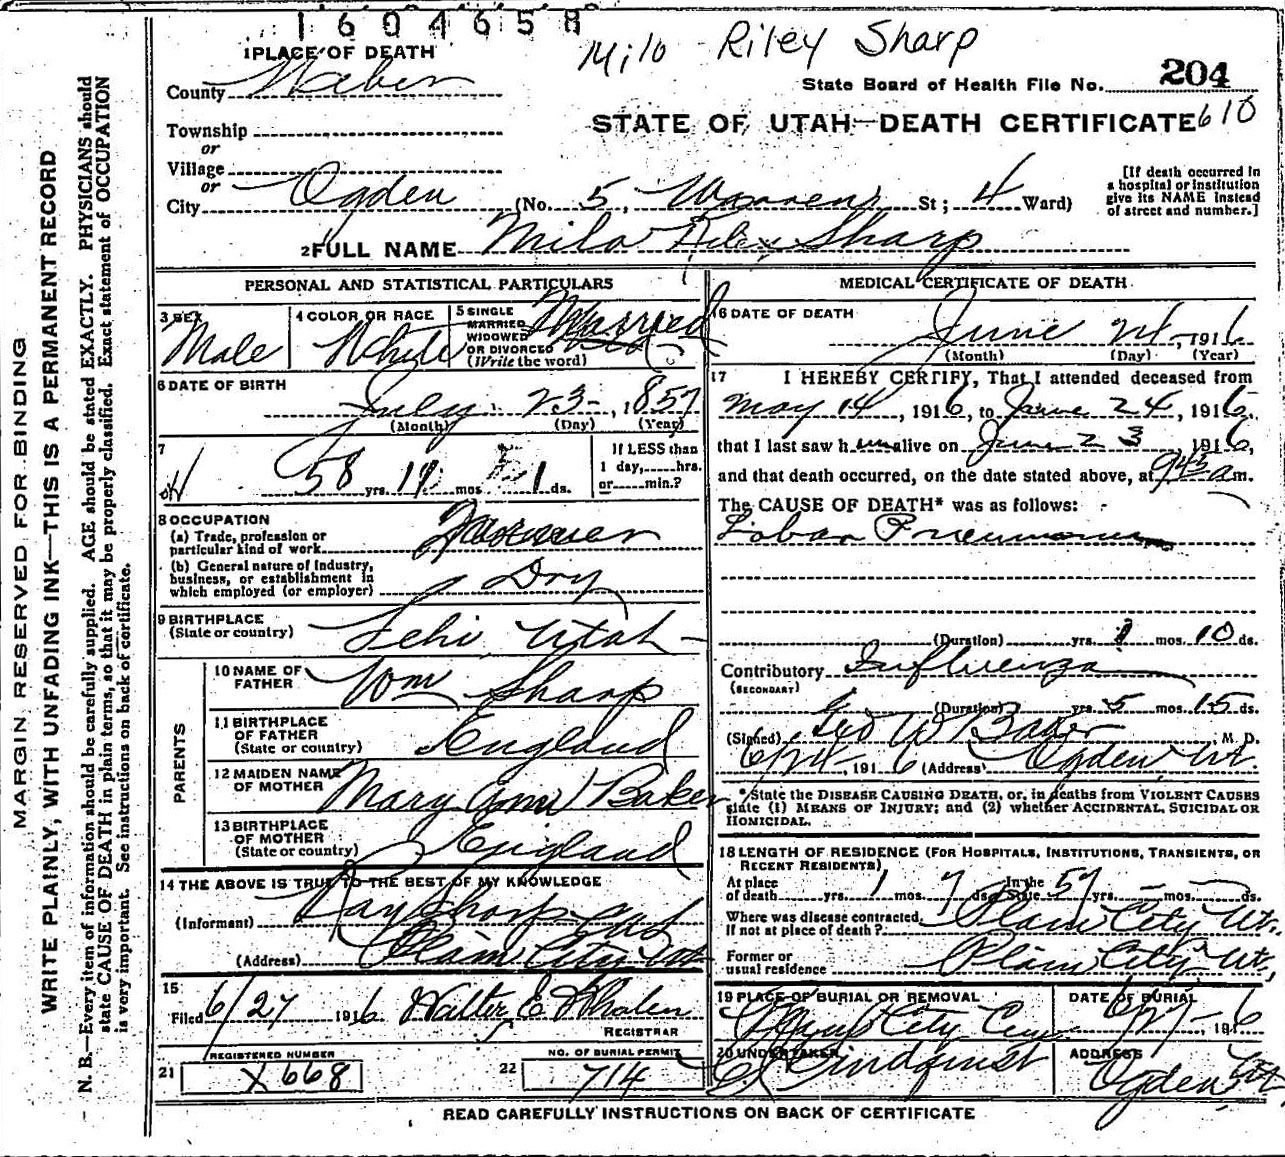 1604658
Milo Riley Sharp
1 PLACE OF DEATH
County Weber
State Board of Health File No. 204
STATE OF UTAH—DEATH CERTIFICATE 610
Township
or
Village
or
City Ogden (No. 5, Warrens St; 4 Ward)
[If death occurred in a hospital or institution give its NAME instead of street and number.]
2 FULL NAME Milo Riley Sharp
PERSONAL AND STATISTICAL PARTICULARS
3 SEX Male
4 COLOR OR RACE White
5 SINGLE MARRIED WIDOWED OR DIVORCED (Write the word) Married
6 DATE OF BIRTH July 23, 1857
(Month) (Day) (Year)
7 58 yrs. 11 mos. 1 ds.
If LESS than 1 day, hrs. or min.?
8 OCCUPATION
(a) Trade, profession or particular kind of work Farmer
(b) General nature of industry, business, or establishment in which employed (or employer) Dry
9 BIRTHPLACE (State or country) Lehi, Utah
PARENTS
10 NAME OF FATHER Wm Sharp
11 BIRTHPLACE OF FATHER (State or country) England
12 MAIDEN NAME OF MOTHER Mary Ann Baker
13 BIRTHPLACE OF MOTHER (State or country) England
14 THE ABOVE IS TRUE TO THE BEST OF MY KNOWLEDGE
(Informant) Ray Sharp
(Address) Plain City Ut
15
Filed 6/27 1916 Walter E Whalen
REGISTRAR
REGISTERED NUMBER
21 X668
NO. OF BURIAL PERMIT
22 714
MEDICAL CERTIFICATE OF DEATH
16 DATE OF DEATH
June 24, 1916
(Month) (Day) (Year)
17 I HEREBY CERTIFY, That I attended deceased from
May 14, 1916, to June 24, 1916,
that I last saw him alive on June 23 1916,
and that death occurred, on the date stated above, at 9 45 a m.
The CAUSE OF DEATH* was as follows:
Lobar Pneumonia
(Duration) yrs. mos. 10 ds.
Contributory Influenza
(SECONDARY)
(Duration) yrs. 5 mos. 15 ds.
(Signed) Geo W Baker, M. D.
6/24, 1916 (Address) Ogden Ut.
*State the DISEASE CAUSING DEATH, or, in deaths from VIOLENT CAUSES
state (1) MEANS OF INJURY; and (2) whether ACCIDENTAL, SUICIDAL OR
HOMICIDAL.
18 LENGTH OF RESIDENCE (FOR HOSPITALS, INSTITUTIONS, TRANSIENTS, OR
RECENT RESIDENTS)
At place of death yrs. 1 mos. 7 ds. In the State 57 yrs. mos. ds.
Where was disease contracted, if not at place of death? Plain City Ut.
Former or usual residence Plain City Ut,
19 PLACE OF BURIAL OR REMOVAL Plain City Cem
DATE OF BURIAL 6/27-1916
20 UNDERTAKER Lindquist
ADDRESS Ogden Ut
READ CAREFULLY INSTRUCTIONS ON BACK OF CERTIFICATE
MARGIN RESERVED FOR BINDING
WRITE PLAINLY, WITH UNFADING INK—THIS IS A PERMANENT RECORD
N. B.—Every item of information should be carefully supplied. AGE should be stated EXACTLY. PHYSICIANS should
state CAUSE OF DEATH in plain terms, so that it may be properly classified. Exact statement of OCCUPATION
is very important. See instructions on back of certificate.